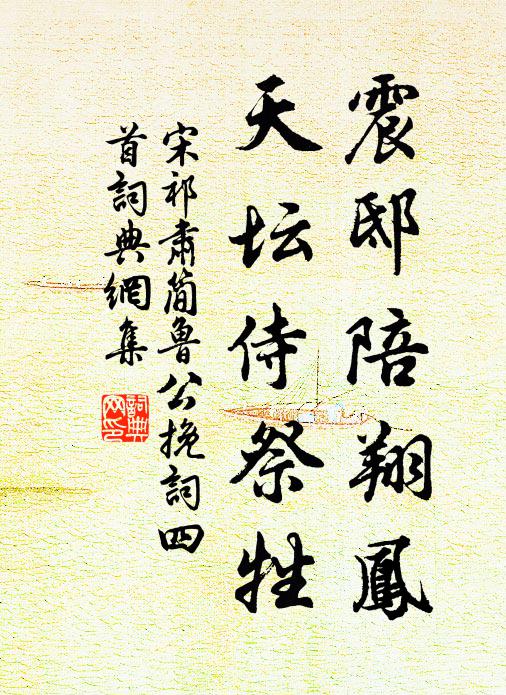 震邸陪翔鳳
天坛侍祭牲
宋祁肅简魯公挽詞四
首詞典網集
詞典
网印